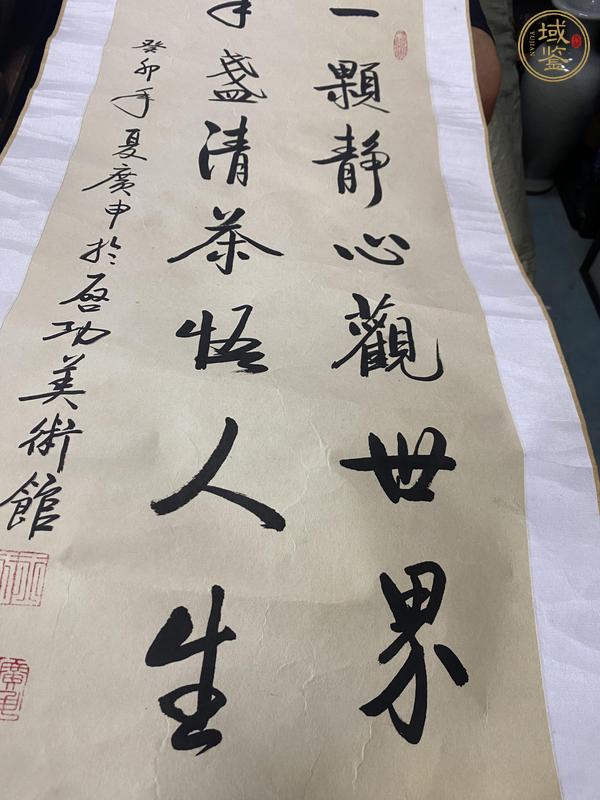 一顆靜心觀世界
盞清茶悟人生
癸卯年夏廣申於启功美術館
廣申
域鉴
YUJIAN